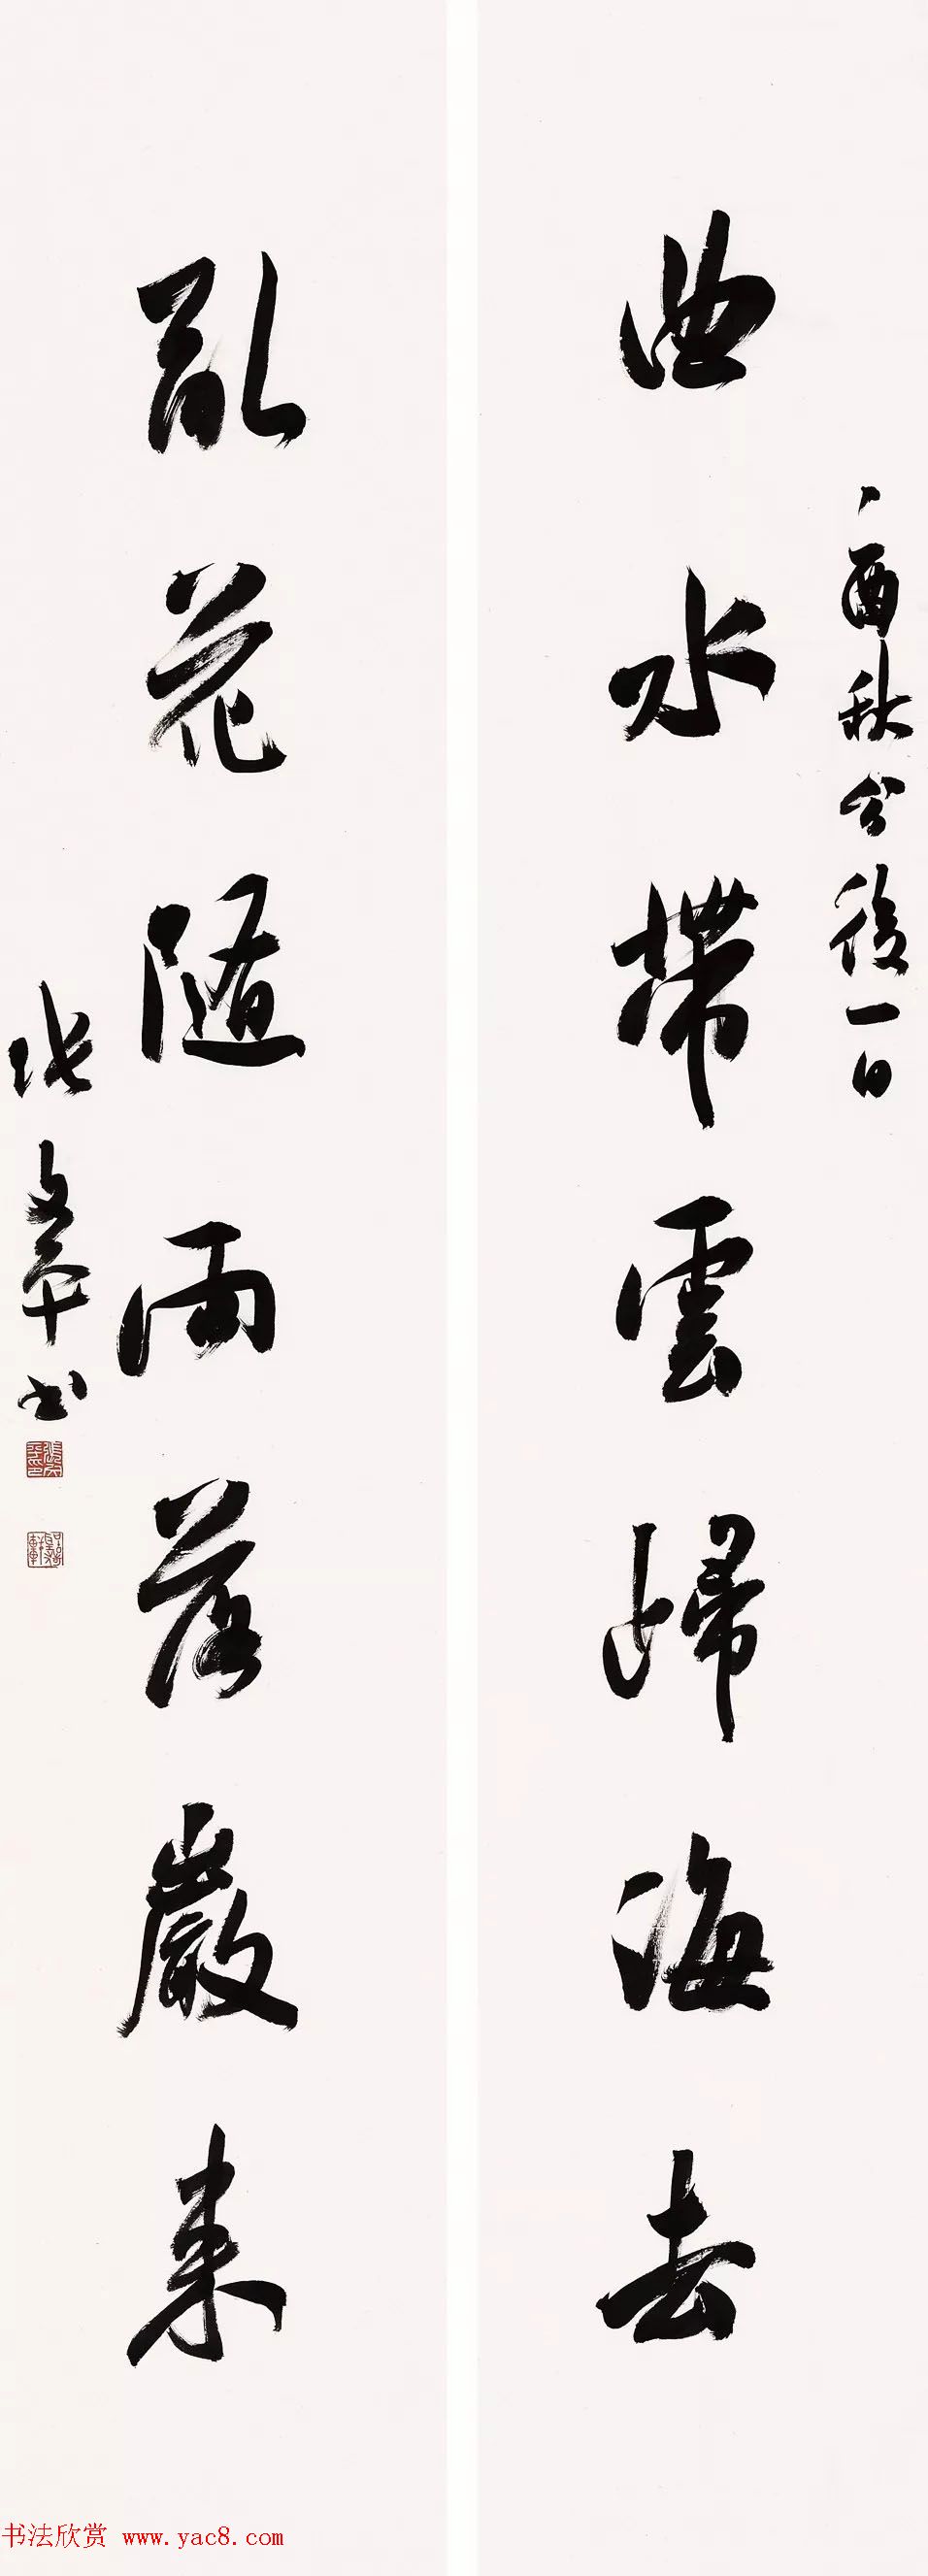 丁酉秋分後一日
曲水帶雲歸海去
亂花隨雨落巖來
張文平書
书法欣赏 www.yac8.com